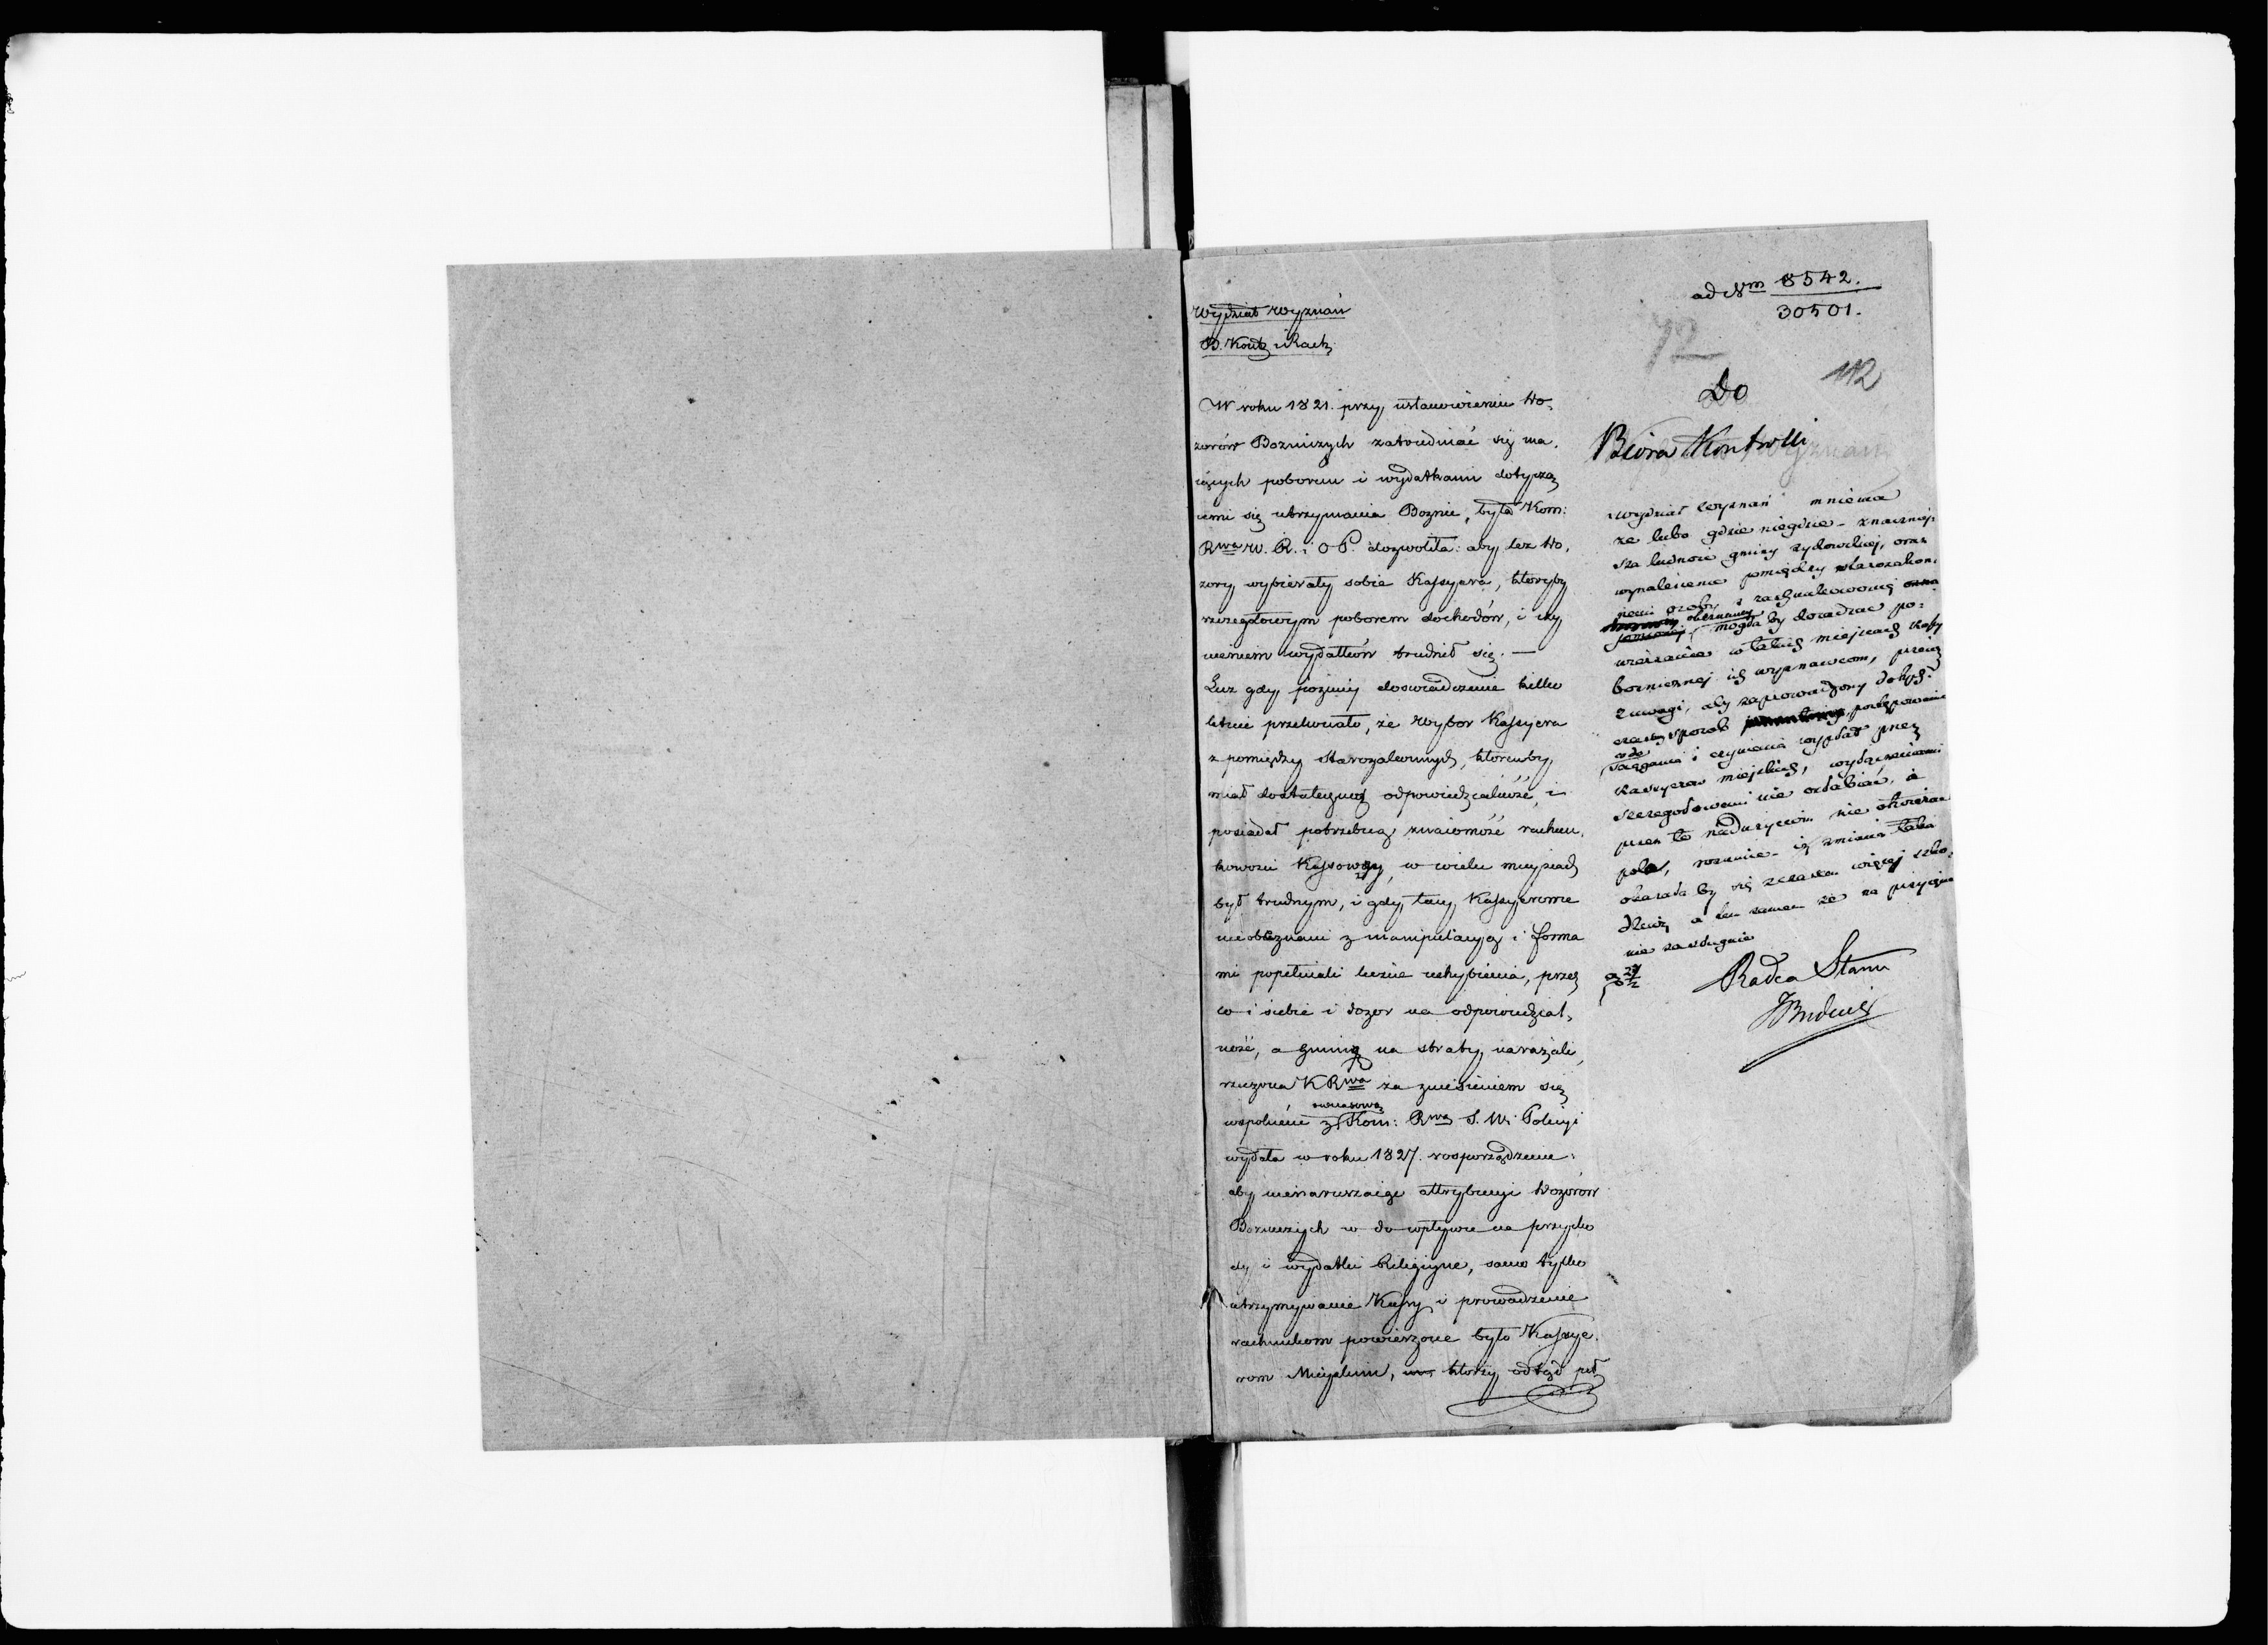 ad Nm 8542.
30501.
72
112
Wydział Wyznań
B. Kontr i Rach.
W roku 1821. przy ustanowieniu Do-
zorów Bozniczych zatrudniać się ma-
iących poborem i wydatkami dotycżą
cemi się utrzymania Boznic, była Kom:
Rwa W. R. i O P. dozwoliła: aby też Do-
zory wybierały sobie Kassyera, któryby
szczegółowym poborem dochodów, i czy
nieniem wydatków trudnił się. —
Lecz gdy pozniej doswiadczenie kilko
letnie przekonało, że wybor Kassyera
z pomiędzy Starozakonnych, którenby
miał dostateczną odpowiedzialność, i
posiadał potrzebną znaiomość rachun-
kowosci Kassowey, w wielu mieyscach
był trudnym, i gdy tacy Kassyerowie
nieobeznani z manipulacyą i forma
mi popełniali liczne uchybienia, przez
co i siebie i dozor na odpowiedzial-
ność, a gminę na straty narażali,
rzeczona K Rwa za zniesieniem się
wspolnie z owczasową Kom: Rwą S. W. i Policyi
wydała w roku 1827. rosporządzenie:
aby nienaruszaiąc attrybucyi Dozorów
Bozniczych co do wpływu na przycho
dy i wydatki Religiyne, samo tylko
utrzymywanie Kassy i prowadzenie
rachunkom powierzone było Kassye-
rom Mieyskim, którzy odtąd peł
Do
Biora Kontrolli
Wydział Wyznań mniema
że lubo gdzie niegdzie znaczniej-
sza ludnosć gminy żydowskiej, oraz
wynalezienie pomiędzy starozakon-
nemi osoby z rachunkowoscią
obeznanej mogła by doradzać po-
wierzanie w takich miejscach Kassy
bozniczej ich wyznawcom, przecież
z uwagi, aby zaprowadzony dotych-
czas sposob postępowania
co do
ściągania i czynienia wypłat przez
Kassyerów miejskich, wyłączeniami
szczegołowemi nie osłabiać, a
przez to nadużyciom nie otwierać
pola, rozumie iż zmiana taka
okazała by się z czasem więcej szko-
dliwą a tem samem że na przyjęcie
nie zasługuie
Radca Stanu